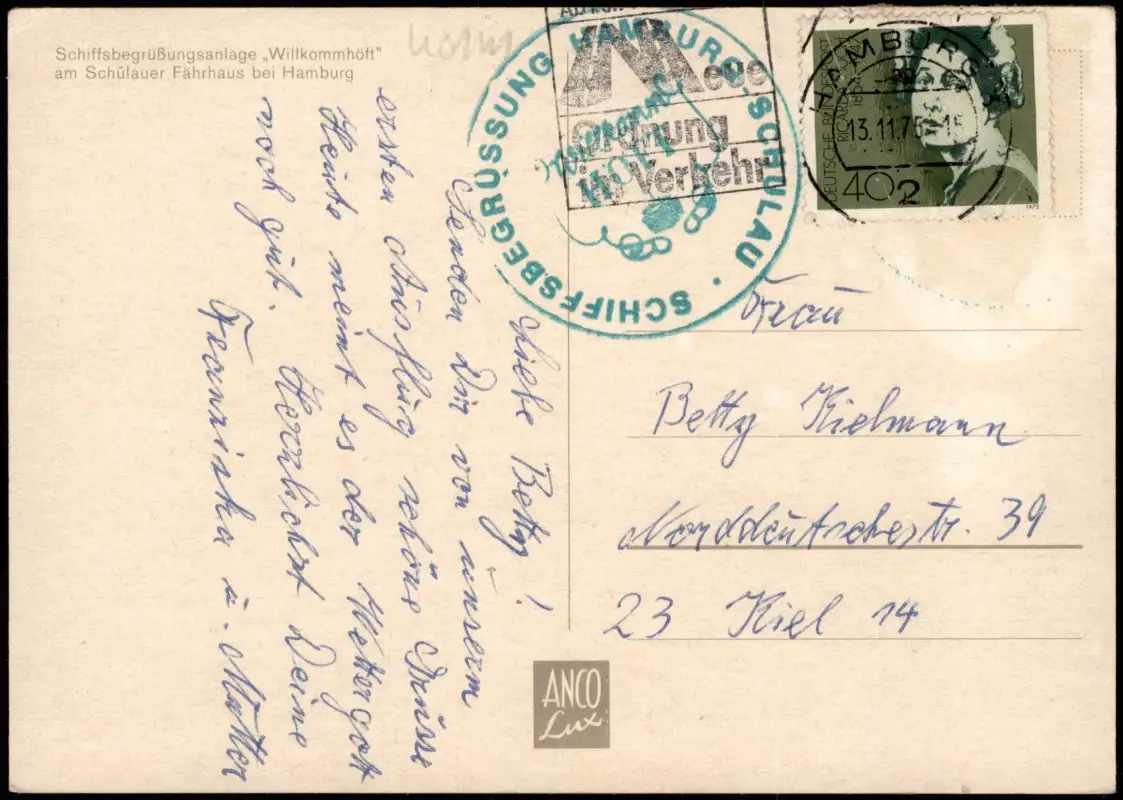 Schiffsbegrüßungsanlage „Willkommhöft"
am Schulauer Fährhaus bei Hamburg
Neue
Ordnung
im Verkehr
SCHIFFSBEGRÜSSUNG HAMBURG-SCHULAU
HAMBURG
13.11.75-15
2
DEUTSCHE BUNDESPOST
RICARDA HUCH
40
1975
Liebe Betty!
Senden Dir von unserm
ersten Ausflug schöne Grüsse
Heute meint es der Wettergott
noch gut. Herzlichst Deine
Franziska u. Mutter
Frau
Betty Kielmann
Norddeutschestr. 39
23 Kiel 14
ANCO
Lux